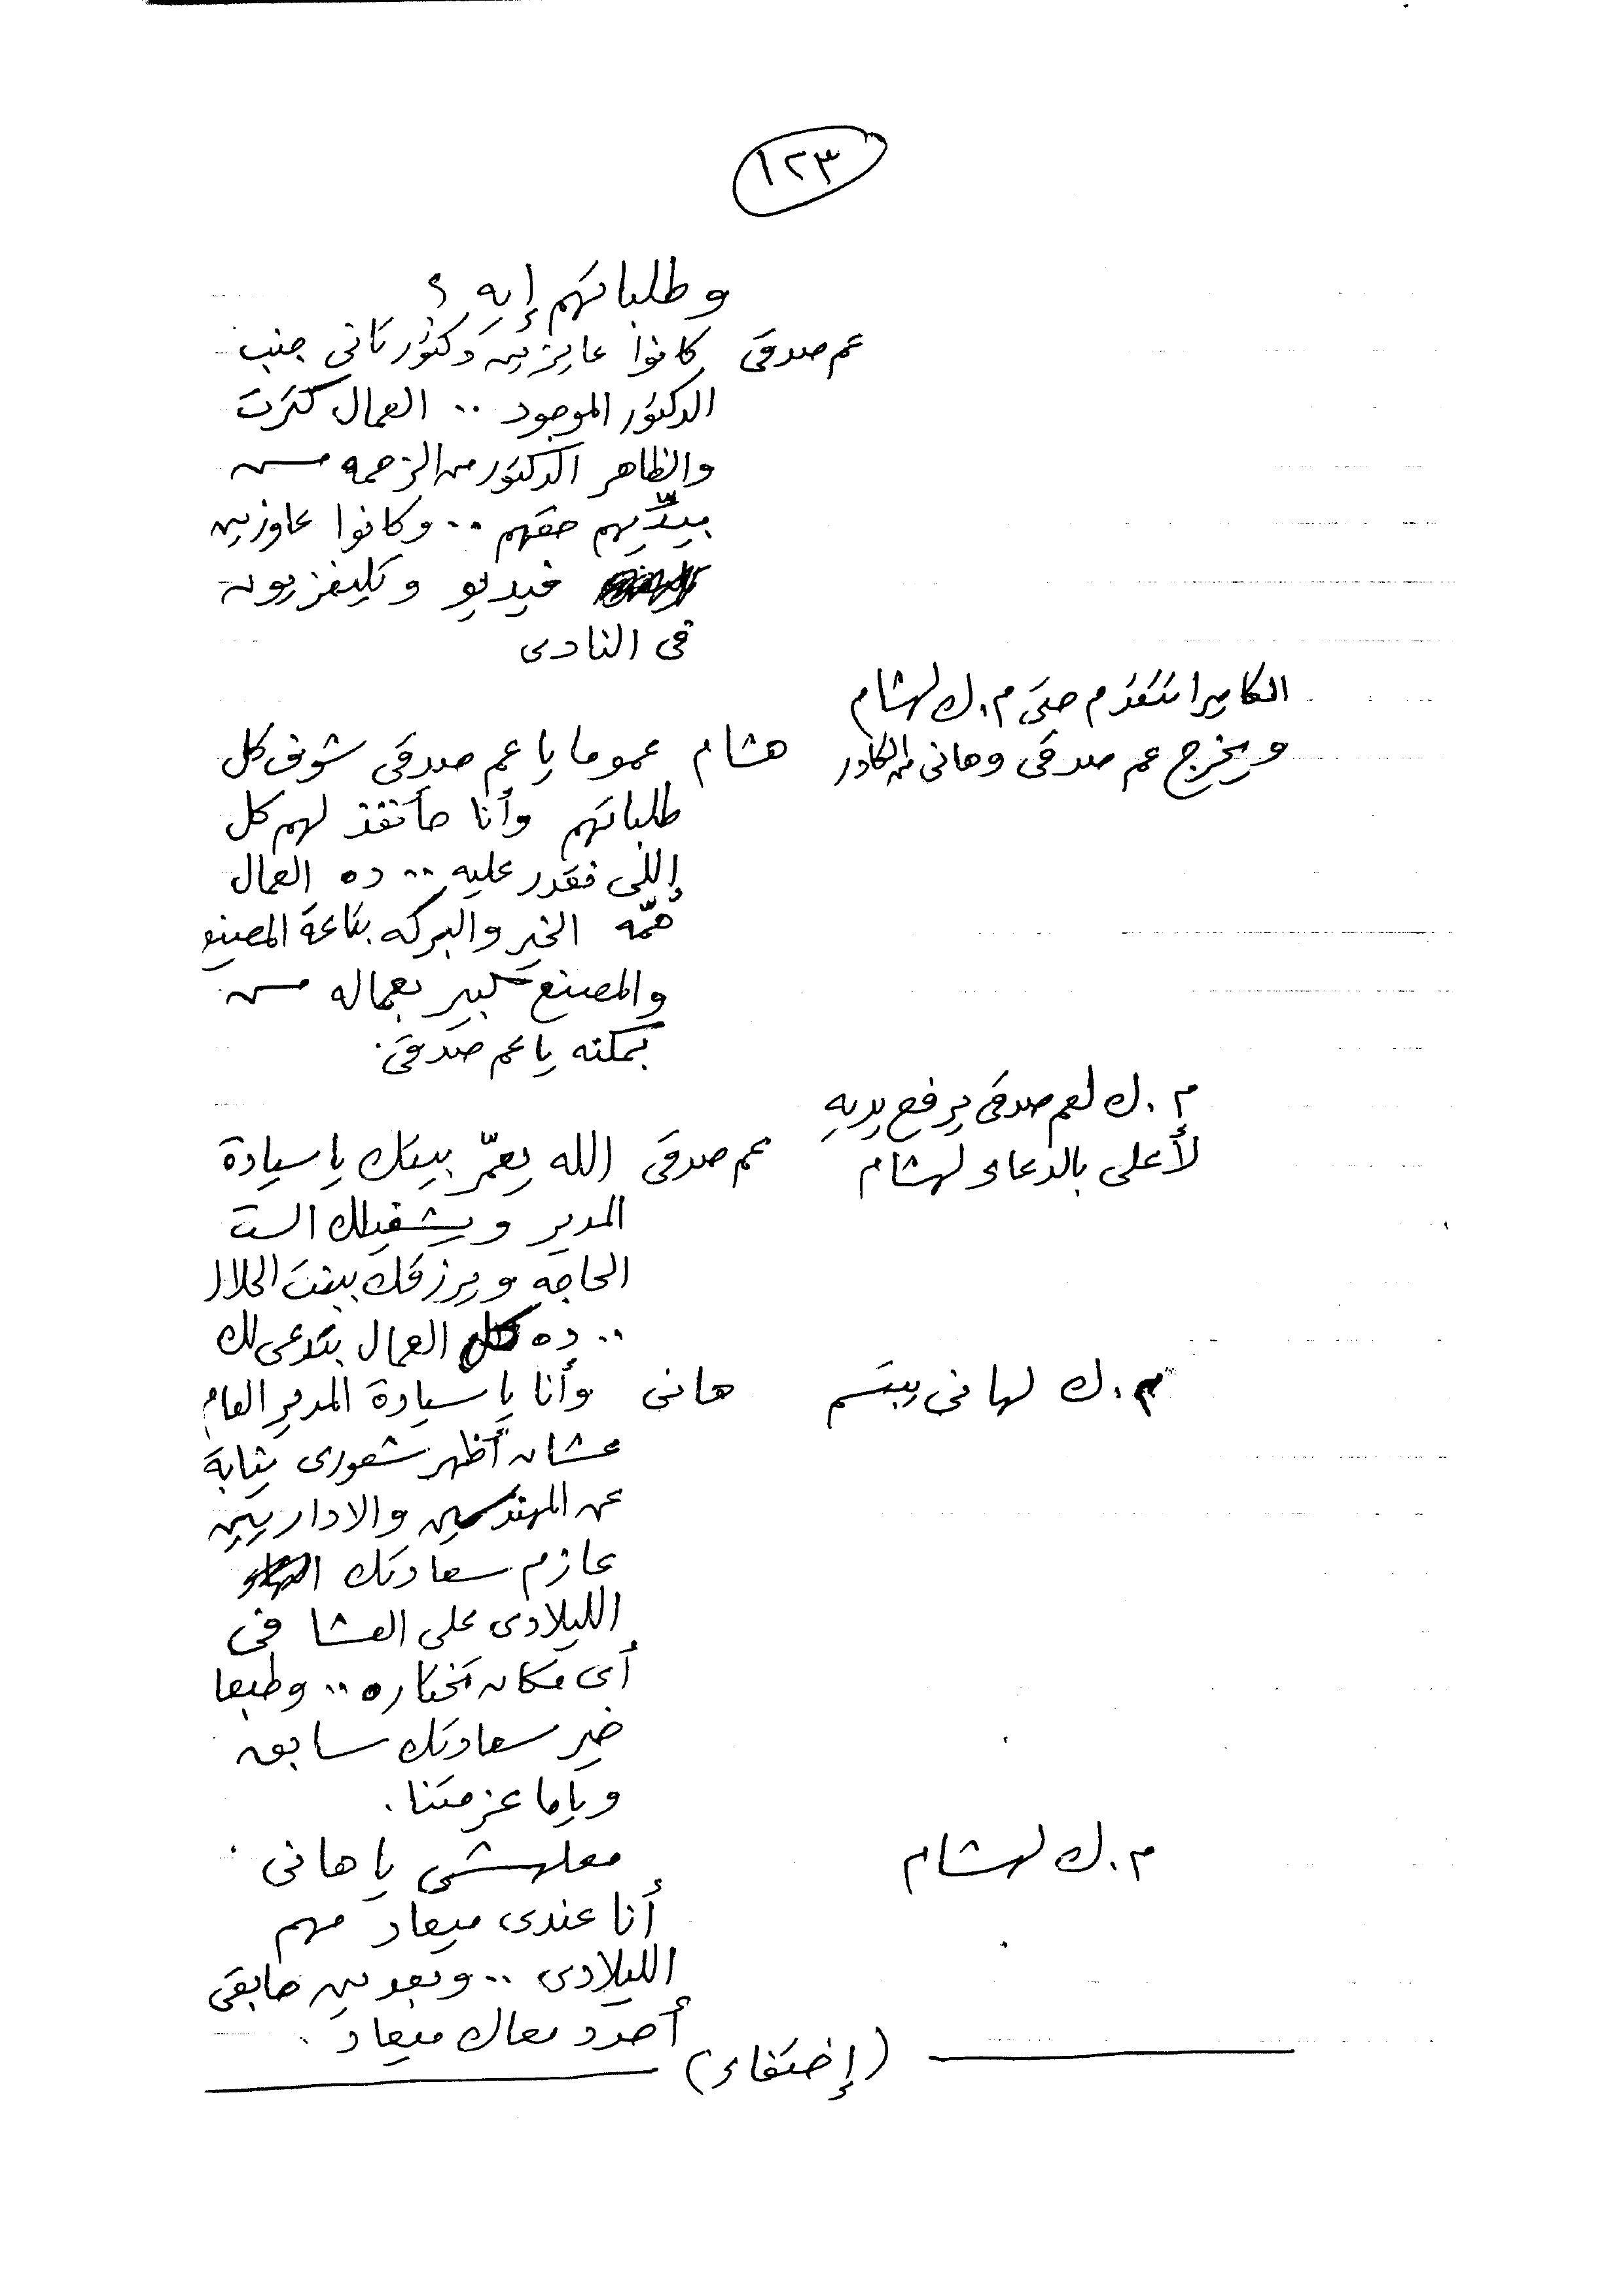 ١٢٣
وطلباتهم إيه ؟
عم صدقى كانوا عايزين دكتور تانى جنب
الدكتور الموجود .. العمال كترت
والظاهر الدكتور من الزحمه مش
بيدّيهم حقهم .. وكانوا عاوزين
فيديو وتليفزيون
فى النادى
الكاميرا تتقدم حتى م . ك لهشام
ويخرج عم صدقى وهانى من الكادر
هشام عموما يا عم صدقى شوف كل
طلباتهم وأنا حأنفذ لهم كل
إللى نقدر عليه .. ده العمال
همّه الخير والبركه بتاعة المصنع
والمصنع كبير بعماله مش
بمكنه يا عم صدقى .
م . ك لعم صدقى يرفع يديه
لأعلى بالدعاء لهشام
عم صدقى الله يعمّر بيتك يا سيادة
المدير ويشفيلك الست
الحاجه ويرزقك ببنت الحلال
.. ده كل العمال بتدعى لك
م . ك لهانى يبتسم هانى وأنا يا سيادة المدير العام
عشان أظهر شعورى نيابة
عن المهندسين والاداريين
عازم سعادتك
الليلادى على العشا فى
أى مكان تختاره .. وطبعا
خير سعادتك سابق
وياما عزمتنا .
م . ك لهشام معلهش يا هانى .
أنا عندى ميعاد مهم
الليلادى .. وبعدين حابقى
أحدد معاك ميعاد .
( إختفاء )